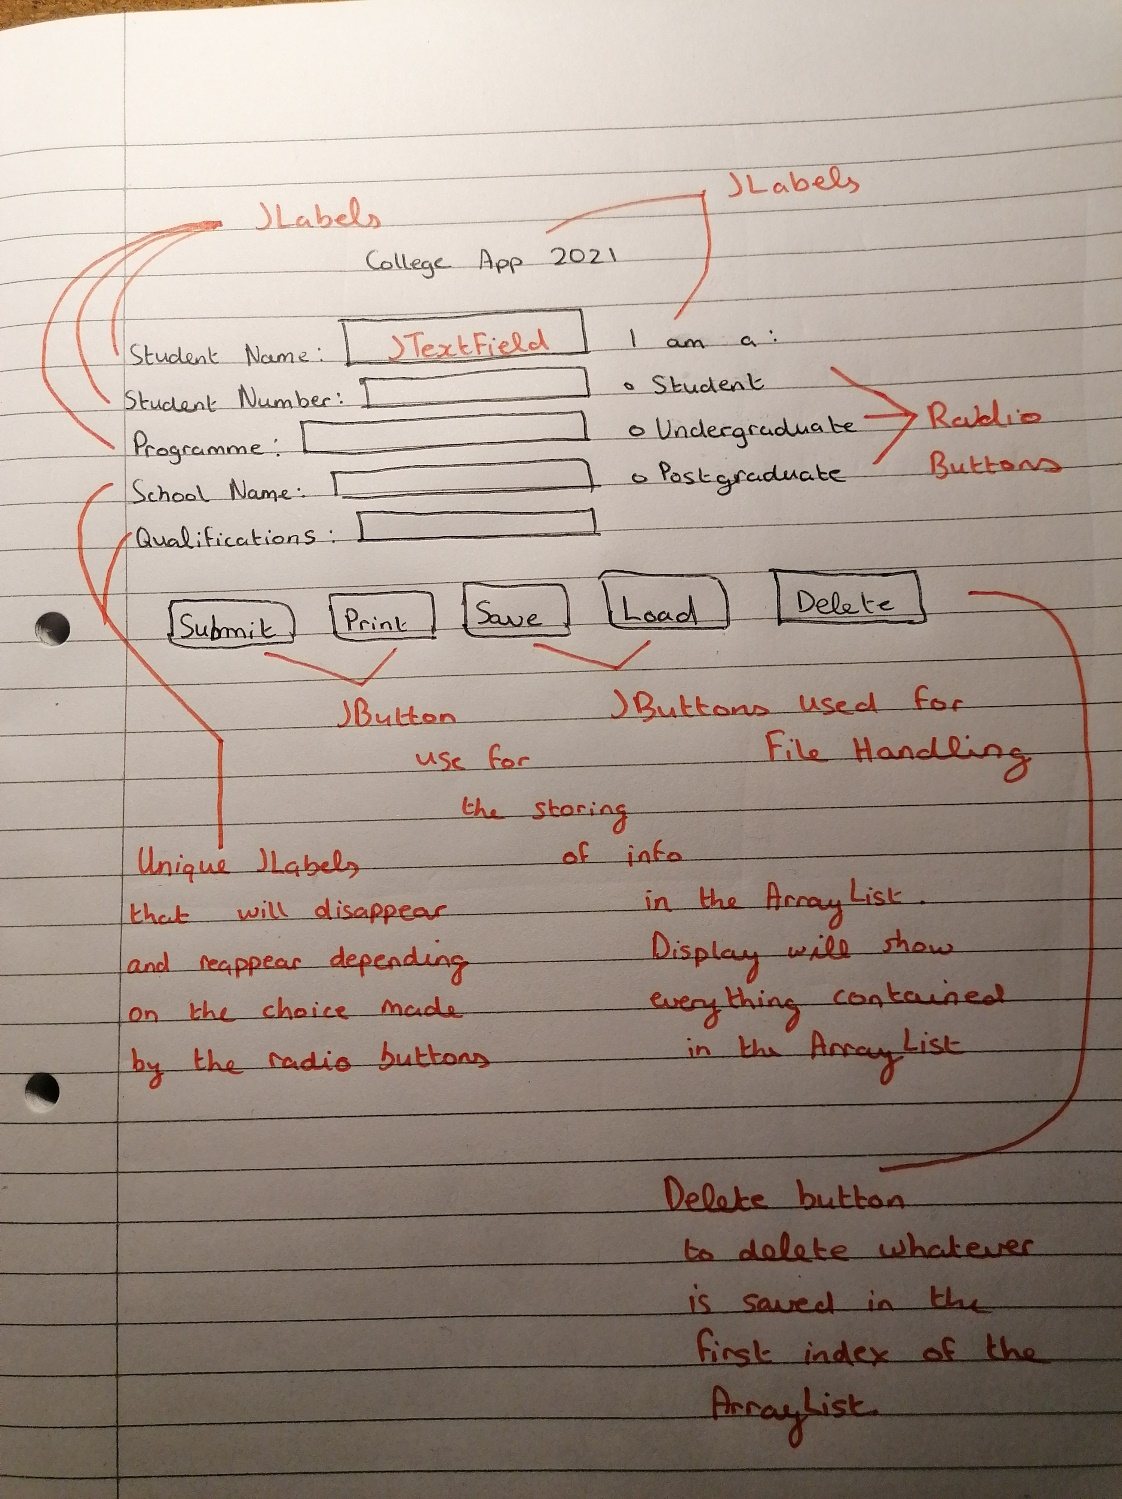 JLabels
JLabels
College App 2021
Student Name: JTextField I am a:
Student Number: o Student
Programme: o Undergraduate
Radio
Buttons
School Name: o Postgraduate
Qualifications:
Submit Print Save Load Delete
JButton
use for
the storing
of info
in the ArrayList.
Display will show
everything contained
in the ArrayList
JButtons used for
File Handling
Unique JLabels
that will disappear
and reappear depending
on the choice made
by the radio buttons
Delete button
to delete whatever
is saved in the
first index of the
ArrayList.